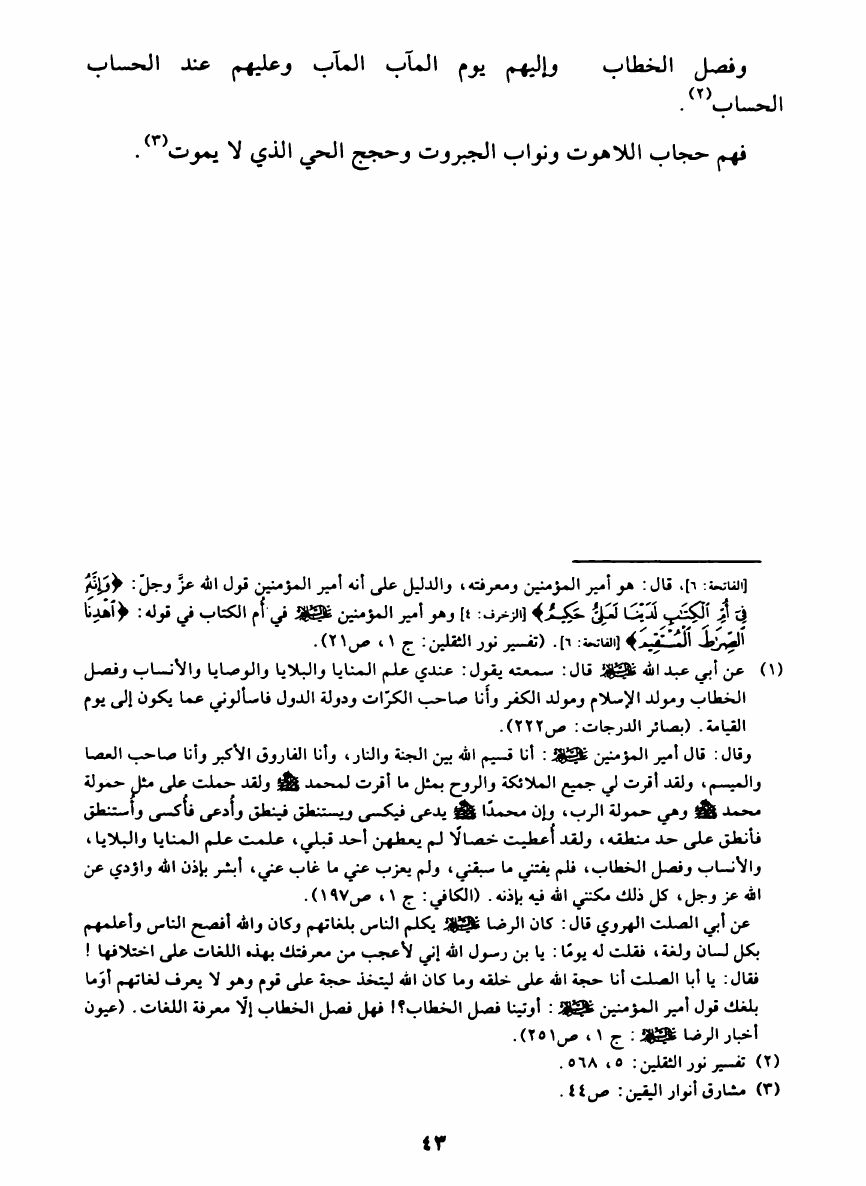 وفصل الخطاب وإليهم يوم المآب المآب وعليهم عند الحساب
الحساب(٢).
فهم حجاب اللاهوت ونواب الجبروت وحجج الحي الذي لا يموت(٣).
[الفاتحة: ٦]، قال: هو أمير المؤمنين ومعرفته، والدليل على أنه أمير المؤمنين قول الله عزَّ وجلّ: ﴿وَإِنَّهُ
فِي أُمِّ الْكِتَابِ لَدَيْنَا لَعَلِيٌّ حَكِيمٌ﴾ [الزخرف: ٤] وهو أمير المؤمنين عليه السلام في أُم الكتاب في قوله: ﴿اهْدِنَا
الصِّرَاطَ الْمُسْتَقِيمَ﴾ [الفاتحة: ٦]. (تفسير نور الثقلين: ج ١، ص٢١).
(١) عن أبي عبد الله عليه السلام قال: سمعته يقول: عندي علم المنايا والبلايا والوصايا والأنساب وفصل
الخطاب ومولد الإسلام ومولد الكفر وأنا صاحب الكرّات ودولة الدول فاسألوني عما يكون إلى يوم
القيامة. (بصائر الدرجات: ص٢٢٢).
وقال: قال أمير المؤمنين عليه السلام: أنا قسيم الله بين الجنة والنار، وأنا الفاروق الأكبر وأنا صاحب العصا
والميسم، ولقد أقرت لي جميع الملائكة والروح بمثل ما أقرت لمحمد ﷺ ولقد حملت على مثل حمولة
محمد ﷺ وهي حمولة الرب، وإن محمدًا ﷺ يدعى فيكسى ويستنطق فينطق وأُدعى فأُكسى وأُستنطق
فأنطق على حد منطقه، ولقد أُعطيت خصالًا لم يعطهن أحد قبلي، علمت علم المنايا والبلايا،
والأنساب وفصل الخطاب، فلم يفتني ما سبقني، ولم يعزب عني ما غاب عني، أبشر بإذن الله واؤدي عن
الله عز وجل، كل ذلك مكنني الله فيه بإذنه. (الكافي: ج ١، ص١٩٧).
عن أبي الصلت الهروي قال: كان الرضا عليه السلام يكلم الناس بلغاتهم وكان والله أفصح الناس وأعلمهم
بكل لسان ولغة، فقلت له يومًا: يا بن رسول الله إني لأعجب من معرفتك بهذه اللغات على اختلافها!
فقال: يا أبا الصلت أنا حجة الله على خلقه وما كان الله ليتخذ حجة على قوم وهو لا يعرف لغاتهم أوَما
بلغك قول أمير المؤمنين عليه السلام: أوتينا فصل الخطاب؟! فهل فصل الخطاب إلّا معرفة اللغات. (عيون
أخبار الرضا عليه السلام: ج ١، ص٢٥١).
(٢) تفسير نور الثقلين: ٥، ٥٦٨.
(٣) مشارق أنوار اليقين: ص٤٤.
٤٣